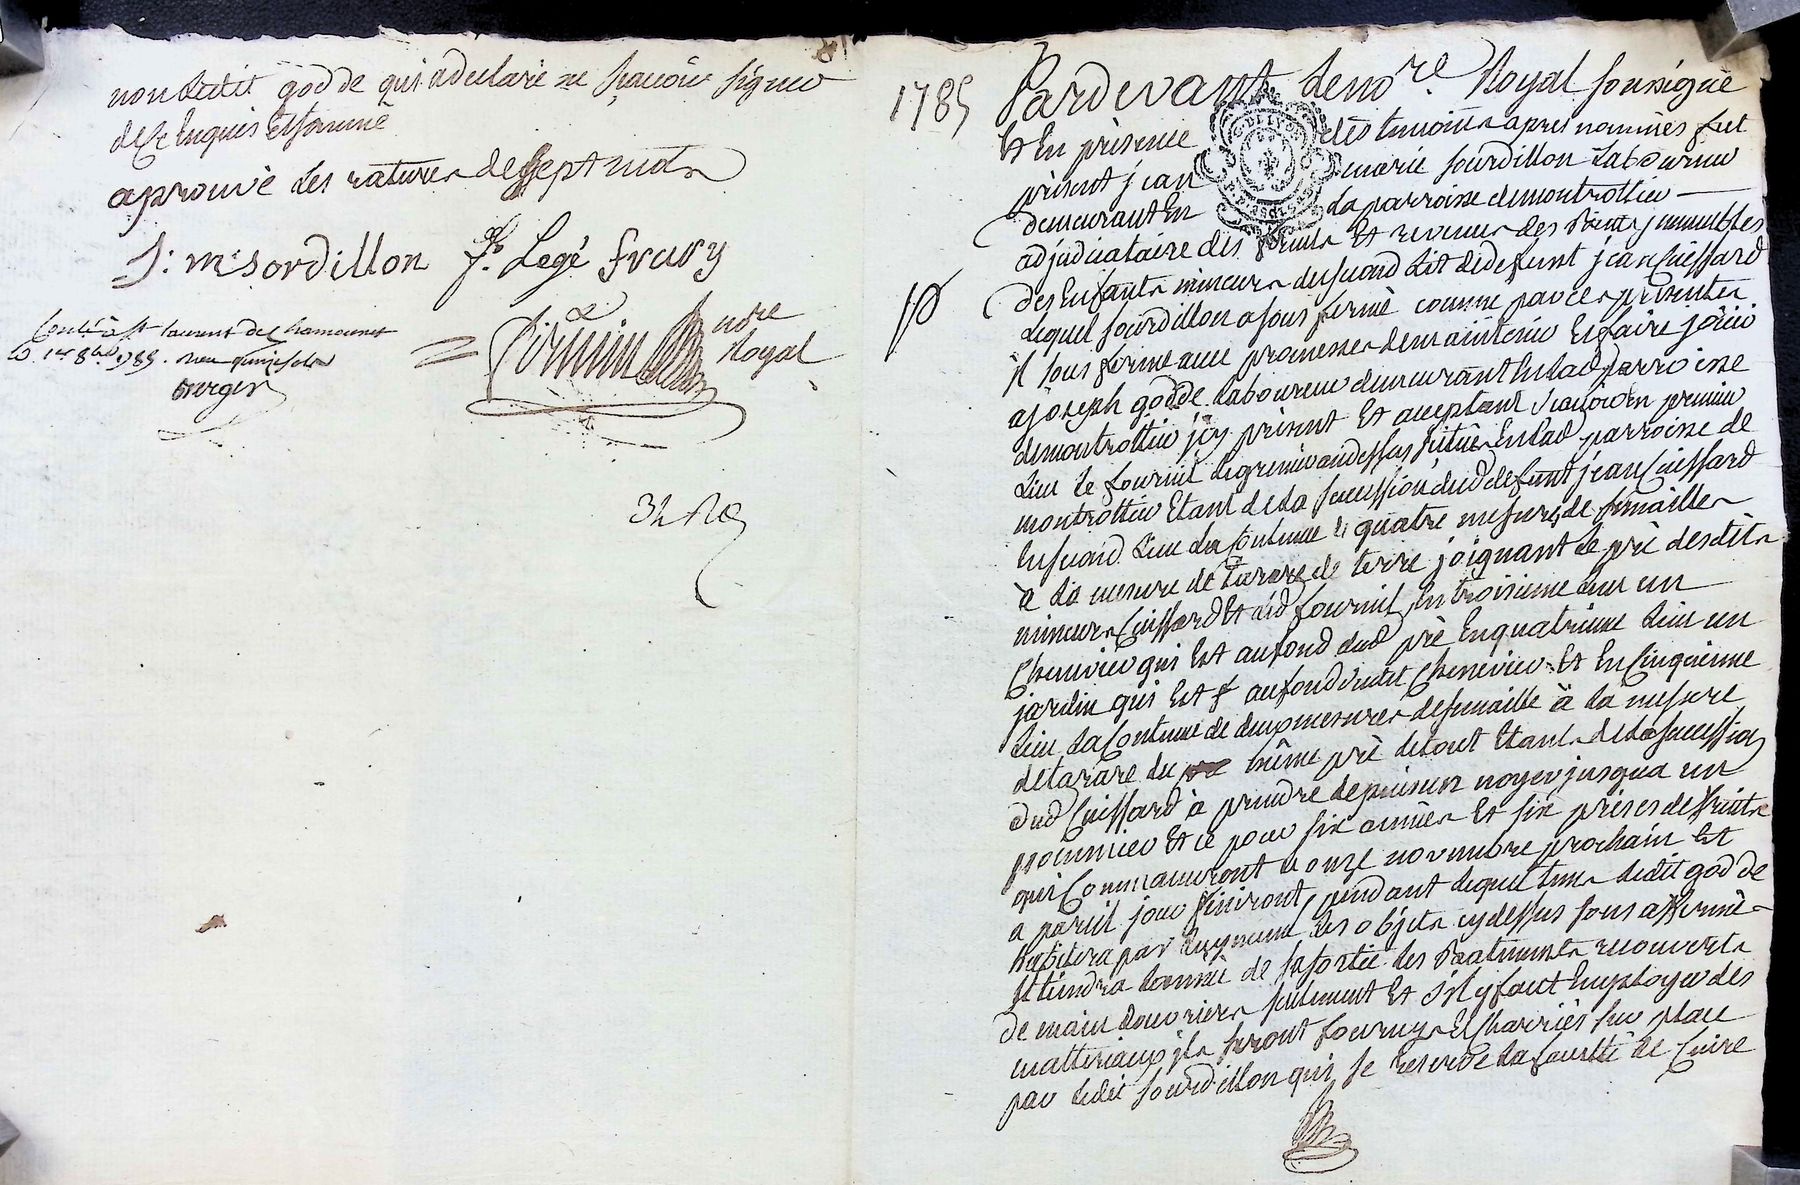 non ledit godde qui a declaré ne sçavoir signer
de ce enquis et sommé
aprouvé les ratures de sept mots
J: m: sordillon f. Legé frary
notre
Royal
Conlé à St laurent de Chamousset
le 1er 8bre 1785. reçu quinze sols
berger
1785
Pardevant le no.re Royal soussigné
Et En présence des temoins apres nommés fut
présent jean marie sourdillon laboureur
demeurant En la parroisse de montrottier
adjudicataire des fruits Et revenus des biens jmmeubles
des Enfants mineurs du second lit de defunt jean Cuissard
Lequel sourdillon a sous fermé comme par ces présentes
jl sous ferme avec promesses de maintenir Et faire jouir
a joseph godde laboureur demeurant En lad parroisse
de montrottier jcy présent Et acceptant sçavoir En premier
lieu le fournil le grenier au dessus situés En lad parroisse de
montrottier Etant de la succession dud defunt jean Cuissard
En second lieu la Contenue de quatre mesures de semailles
à la mesure de tarare de terre joignant le pré desdits
mineurs Cuissard Et aud fournil, En troisieme lieu un
Chenevier qui Est au fond dud pré En quatrieme lieu un
jardin qui Est au fond dudit Chenevier Et En Cinquieme
lieu la Contenue de deux mesures de semaille à la mesure
de tarare du même pré le tout Etant de la succession
dud Cuissard à prendre depuis un noyer jusqua un
 Et ce pour six années Et six prises de fruits
qui Commanceront a onze novembre prochain Et
a pareil jour finiront, pendant lequel tems ledit godde
habitera par les objets cy dessus sous affermés
Et tiendra de sa sortie les Batiments recouverts
de main douvriers seulement Et s'il y faut Employer des
matteriaux jls seront fournys Et Charriés sur place
par ledit sourdillon qui se reserve la faculté de Cuire